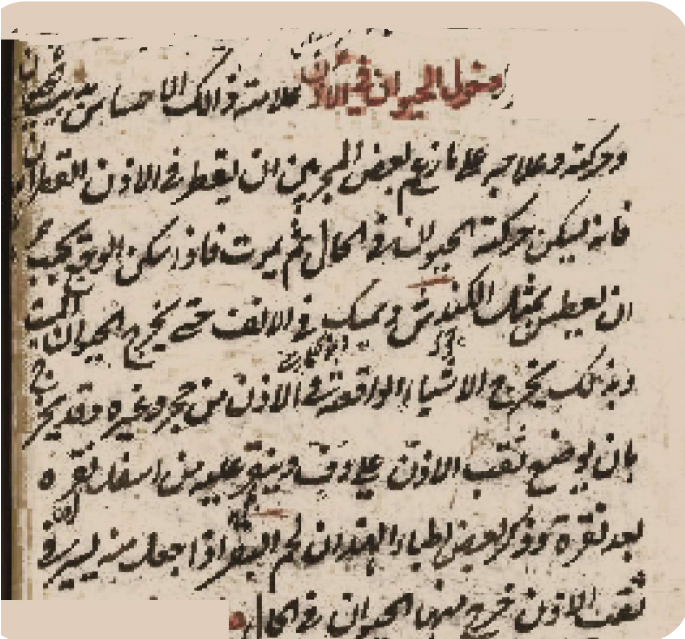 دخول الحيوان في الأذن علامته ذلك الاحساس بدبيب الحيوان
وحركته وعلاجه على ما زعم بعض المجربين ان يقطر في الاذن القطران
فانه يسكن حركة الحيوان في الحال ثم يموت فاذا سكن الوجع يجب
ان يعطس بمثل الكندس ويمسك في الانف حتى يخرج الحيوان الميت
وبذلك يخرج الاشياء الواقعة في الاذن من حجر وغيره وقد يخرج
بان يوضع ثقب الاذن على دف وينقر عليه من اسفل نقره
بعد نقرة وذكر بعض اطباء الهند ان لحم البقر اذا جعل منه يسير في
ثقب الاذن خرج منها الحيوان في الحال